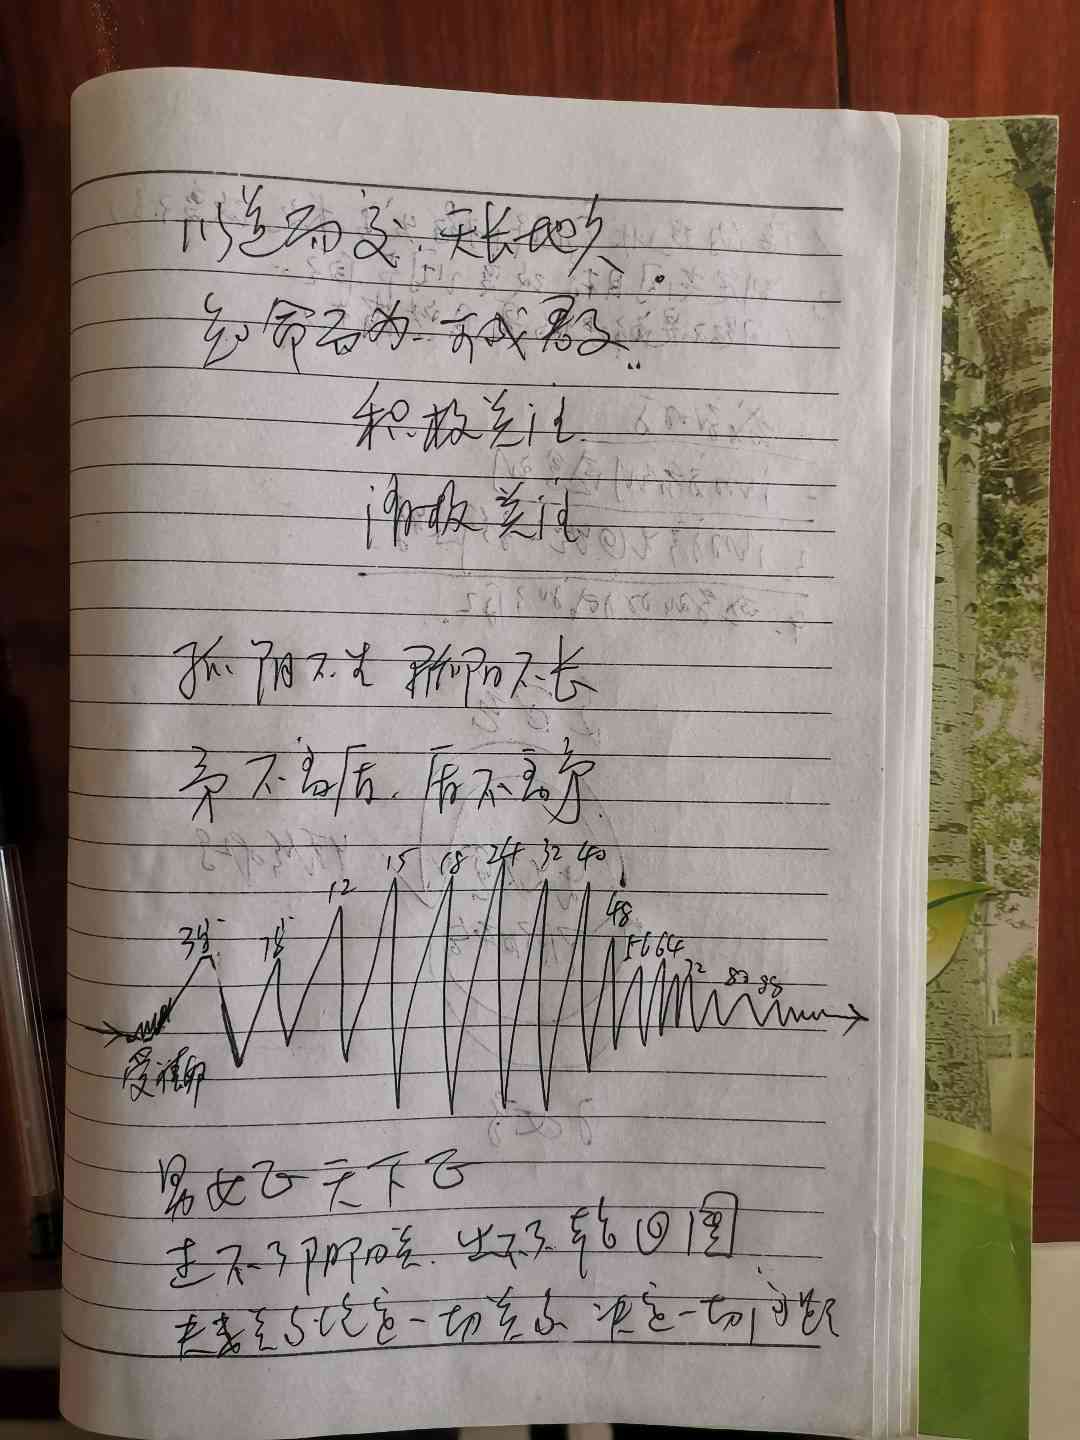 以道而交.天长地久.
积极关注
消极关注
孤阴不生 孤阳不长
旁不离后.后不离旁.
3岁 7岁 12 15 18 24 32 40 48 56 64 72 80 88
受精卵
男女正天下正
过不了阴阳关.出不了轮回圈
夫妻关系决定一切关系 决定一切问题